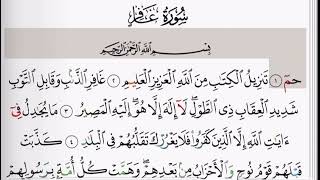 سُورَةُ غَافِرٍ
بِسْمِ اللَّهِ الرَّحْمَٰنِ الرَّحِيمِ
حمٓ ۝١ تَنزِيلُ الْكِتَٰبِ مِنَ اللَّهِ الْعَزِيزِ الْعَلِيمِ ۝٢ غَافِرِ الذَّنۢبِ وَقَابِلِ التَّوْبِ
شَدِيدِ الْعِقَابِ ذِى الطَّوْلِ ۖ لَآ إِلَٰهَ إِلَّا هُوَ ۖ إِلَيْهِ الْمَصِيرُ ۝٣ مَا يُجَٰدِلُ فِىٓ
ءَايَٰتِ اللَّهِ إِلَّا الَّذِينَ كَفَرُوا۟ فَلَا يَغْرُرْكَ تَقَلُّبُهُمْ فِى الْبِلَٰدِ ۝٤ كَذَّبَتْ
قَبْلَهُمْ قَوْمُ نُوحٍ وَالْأَحْزَابُ مِنۢ بَعْدِهِمْ ۖ وَهَمَّتْ كُلُّ أُمَّةٍۭ بِرَسُولِهِمْ